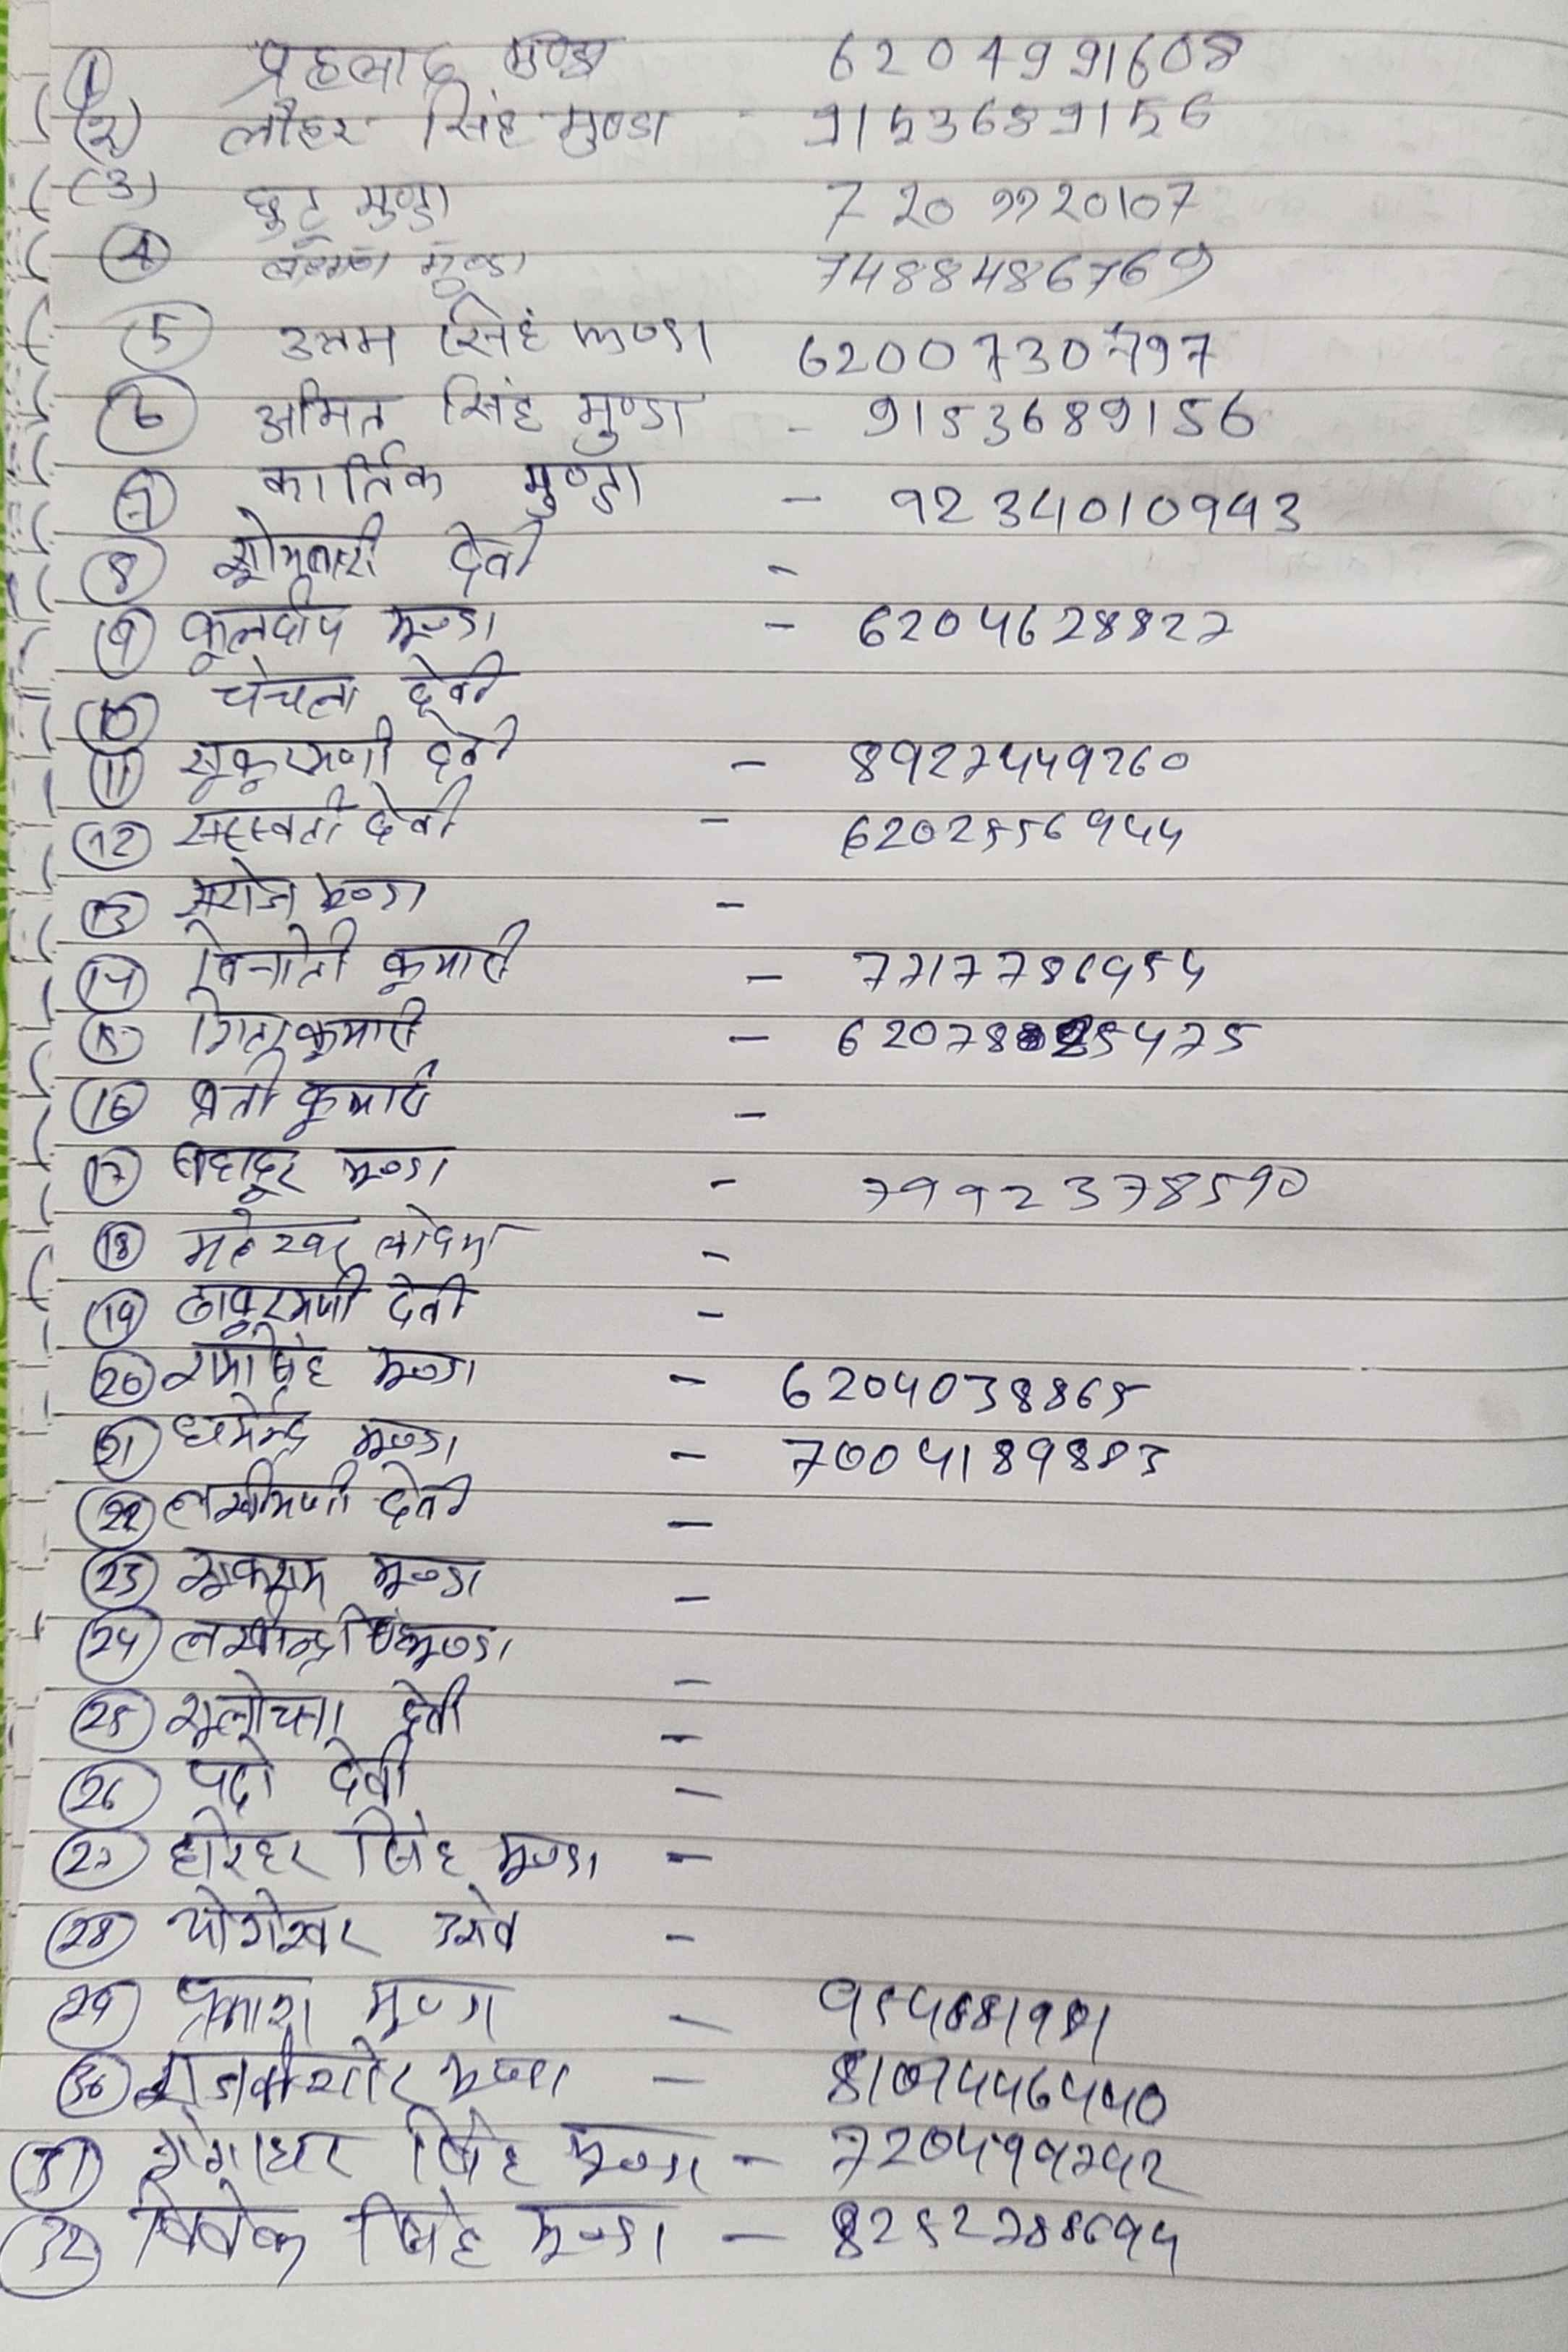 1 प्रहलाद मुण्डा 6204991608
(2) लौहर सिंह मुण्डा - 9153689156
(3) छुटु मुण्डा 7209920107
4 मुण्डा 7488486769
5 उत्तम सिंह मुण्डा 6200730797
6 अमित सिंह मुण्डा - 9153689156
7 कार्तिक मुण्डा - 9234010943
8 सोमवारी देवी -
9 कूलदीप मूण्डा - 6204628827
10 चंचला देवी
11 सूकूरमणी देवी - 8927449260
12 सरस्वती देवी - 6202556944
13 सूरोज मूण्डा -
14 विनोती कूमारी - 7717786954
15 गिता कूमारी - 6207825475
16 कूमारी -
17 बहादूर मूण्डा - 7992378590
18 महेश्वर लोदमा -
19 ठाकूरमणी देवी -
20 रामसिंह मूण्डा - 6204038865
21 धर्मेन्द्र मूण्डा - 7004189883
22 लखीमणी देवी -
23 सूकराम मूण्डा -
24 लखीन्द्र सिंह मूण्डा -
25 सूलोचना देवी -
26 पदो देवी -
27 हरिहर सिंह मूण्डा -
28 योगेश्वर उराँव -
29 प्रकाश मूण्डा -
30 राजकीशोर मूण्डा -
31 गंगाधर सिंह मूण्डा - 7204994292
32 विवेक सिंह मूण्डा - 8252788694